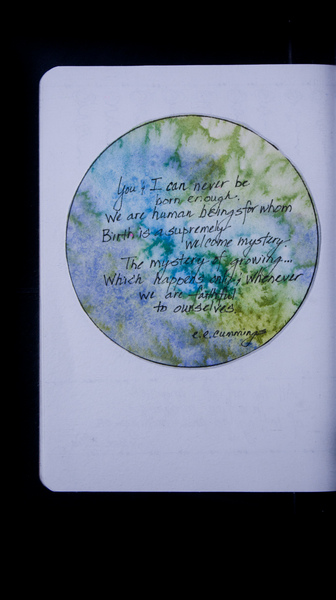 You & I can never be
born enough.
We are human beings for whom
Birth is a supremely
welcome mystery.
The mystery of growing...
Which happens only & whenever
we are faithful
to ourselves.
e.e. cummings